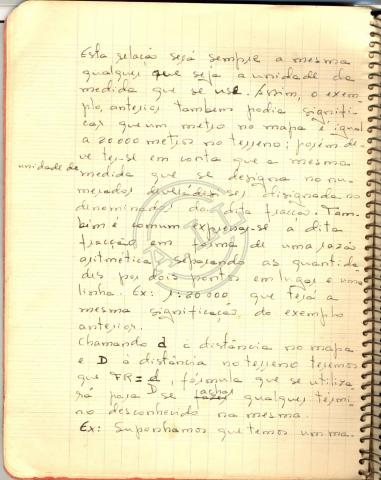 Esta relação será sempre a mesma
qualquer que seja a unidade de
medida que se use. Assim, o exem-
plo, anterior tambem podia signifi-
car que um metro no mapa é igual
a 20000 metros no terreno; porém de-
ve ter-se em conta que a mesma
unidade de
medida que se designa no nu-
merador deverá de ser disignada no
dinominador da dita fracção. Tam-
bim é comum expresar-se a dita
fracção em forma de uma razão
aritmética, separando as quantida-
des por dois pontos em lugar e uma
linha. Ex: 1:20000 que terá a
mesma significação do exemplo
anterior.
Chamando d a distância no mapa
e D à distância no terreno teremos
que FR = d/D, fórmula que se utiliza-
rá para se achar qualquer termi-
no desconhendo na mesma.
Ex: Suponhamos que temos um ma-